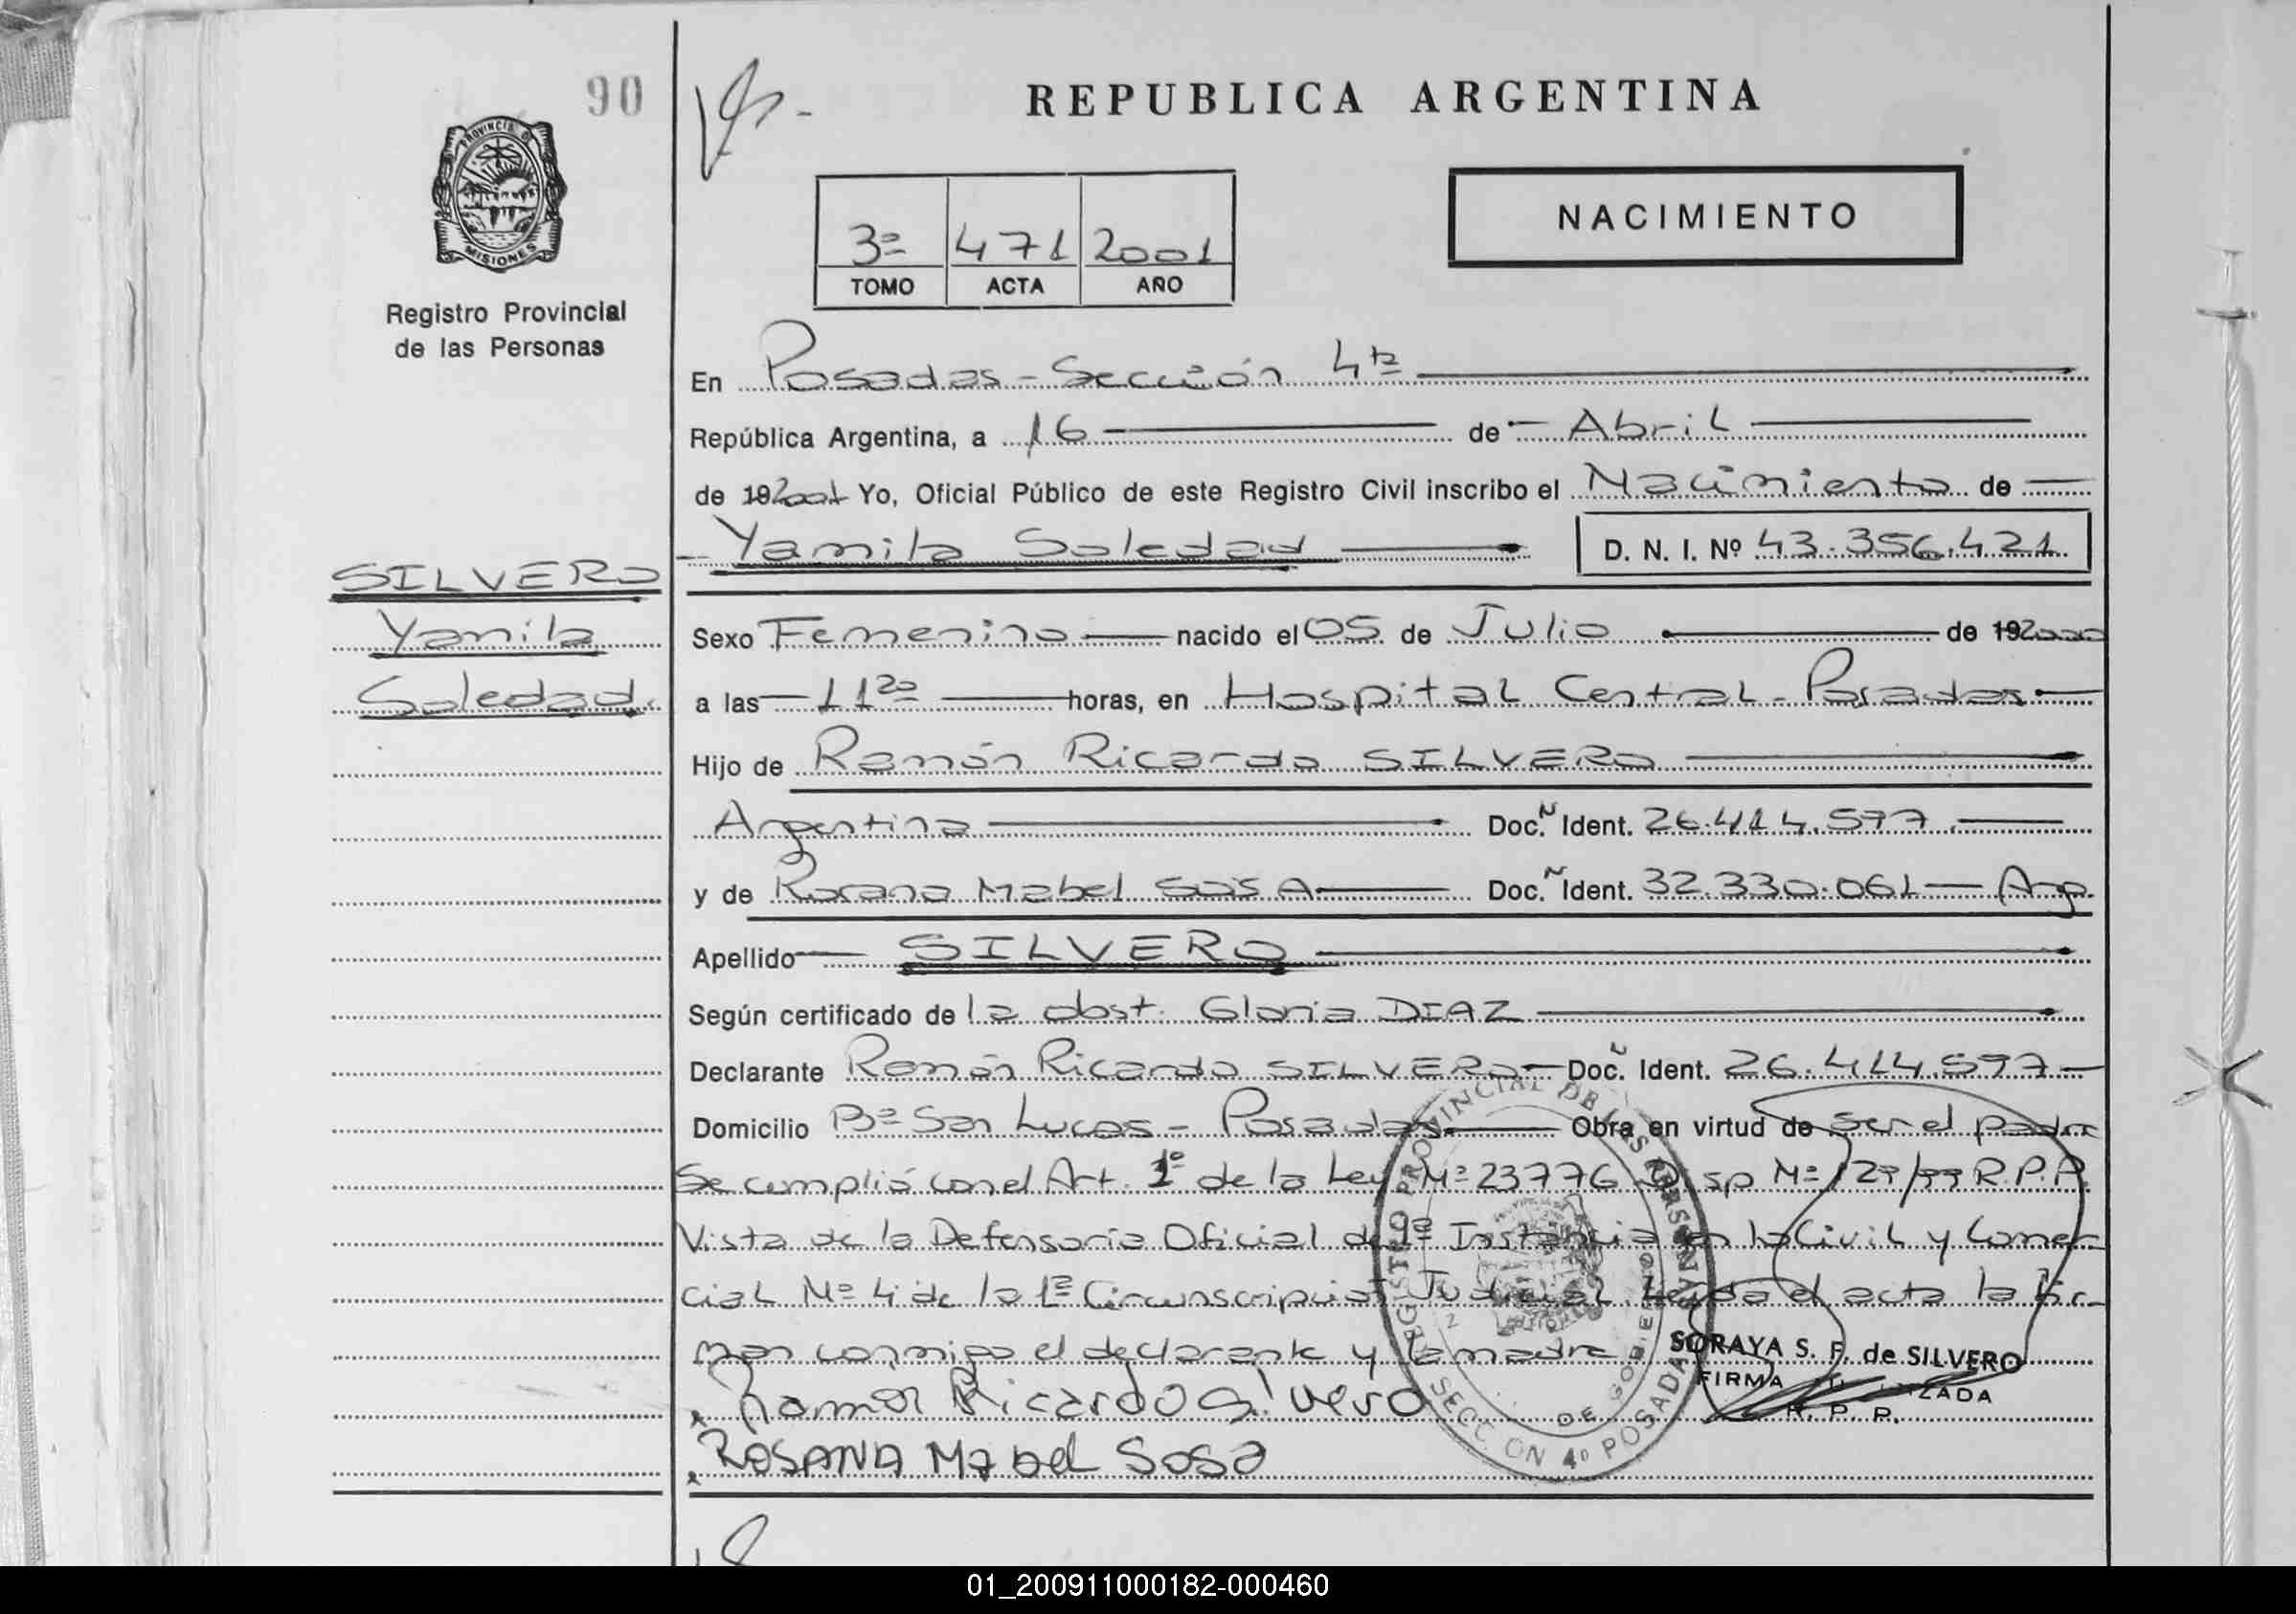 90
REPUBLICA ARGENTINA
PROVINCIA DE MISIONES
Registro Provincial
de las Personas
3º 471 2001
TOMO ACTA AÑO
NACIMIENTO
En Posadas - Sección 4ta
República Argentina, a 16 de Abril
de 192001 Yo, Oficial Público de este Registro Civil inscribo el Nacimiento de
Yamila Soledad D. N. I. Nº 43.356.421
SILVERO
Yamila
Soledad.
Sexo Femenino nacido el 05 de Julio de 192000
a las 11 20 horas, en Hospital Central - Posadas
Hijo de Ramón Ricardo SILVERO
Argentina Doc. N Ident. 26.414.597
y de Rosana Mabel SOSA Doc. N Ident. 32.330.061 Arg.
Apellido SILVERO
Según certificado de la obst. Gloria DIAZ
Declarante Ramón Ricardo SILVERO Doc. N Ident. 26.414.597
Domicilio Bº San Lucas - Posadas Obra en virtud de ser el padre
Se cumplió con el Art. 1º de la Ley Nº 23776 Disp Nº 129/99 R.P.P.
Vista de la Defensoría Oficial de 1ª Instancia en lo Civil y Comer-
cial Nº 4 de la 1ª Circunscripción Judicial. Leída el acta la fir-
man conmigo el declarante y la madre
SORAYA S. F. de SILVERO
FIRMA AUTORIZADA
R. P. P.
Ramon Ricardo Silvero
ROSANA Mabel Sosa
REGISTRO PROVINCIAL DE LAS PERSONAS
SECCION 4º POSADAS
01_200911000182-000460